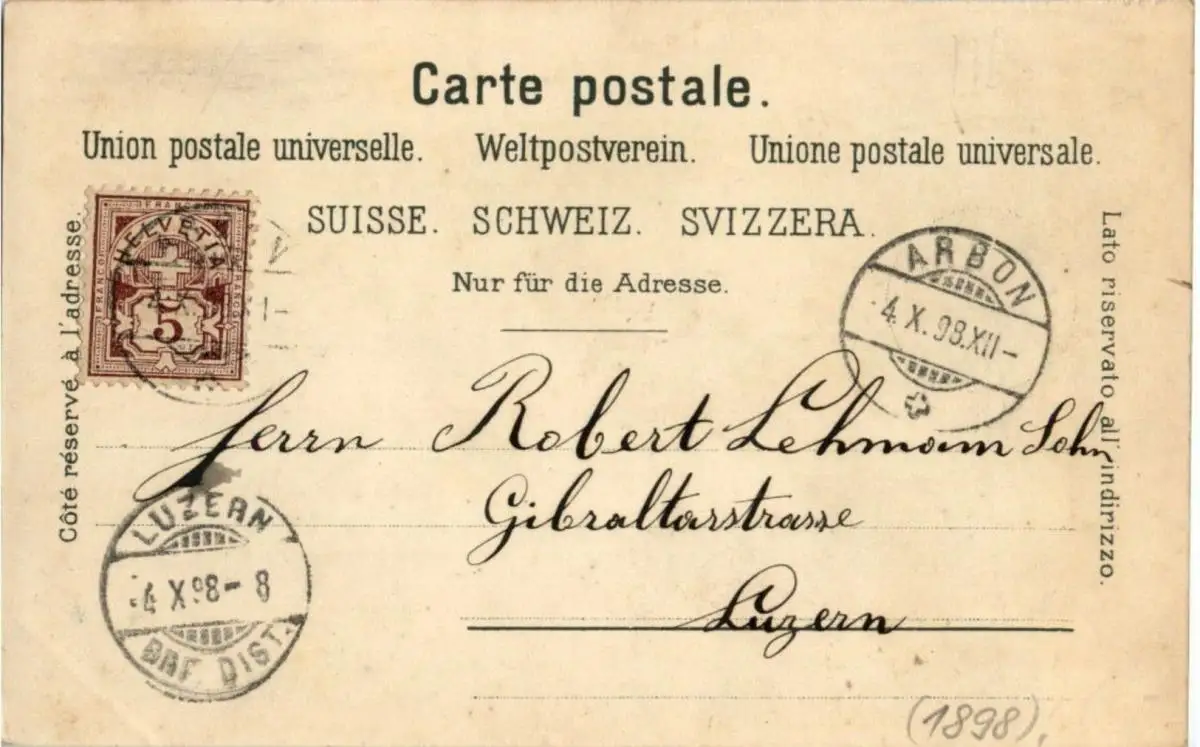 Carte postale.
Union postale universelle. Weltpostverein. Unione postale universale.
SUISSE. SCHWEIZ. SVIZZERA.
Nur für die Adresse.
Côté réservé à l'adresse.
Lato riservato all'indirizzo.
FRANCO
HELVETIA
5
ARBON
4.X.98.XII-
Herrn Robert Lehmann Sohn
Gibraltarstrasse
Luzern
LUZERN
-4 X 98-8
BRF. DIST.
(1898).